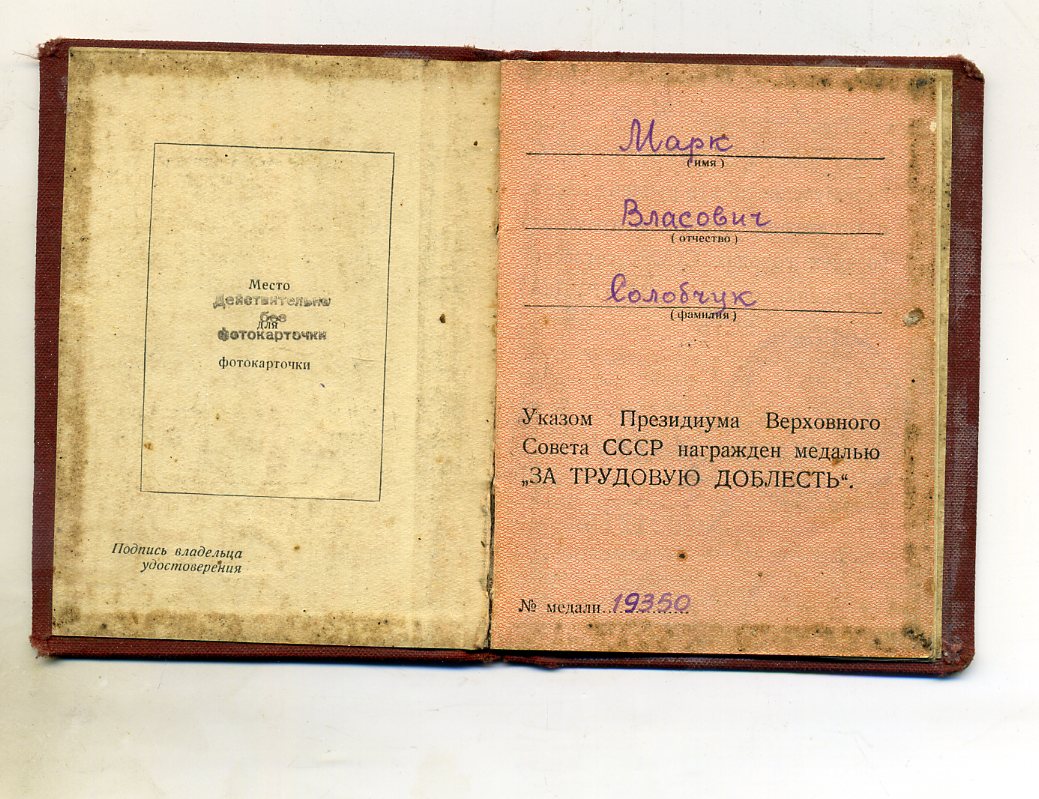 Место
Действительно
без
для
фотокарточки
фотокарточки
Подпись владельца
удостоверения
Марк
( имя )
Власович
( отчество )
Солобчук
( фамилия )
Указом Президиума Верховного
Совета СССР награжден медалью
„ЗА ТРУДОВУЮ ДОБЛЕСТЬ“.
№ медали 19350